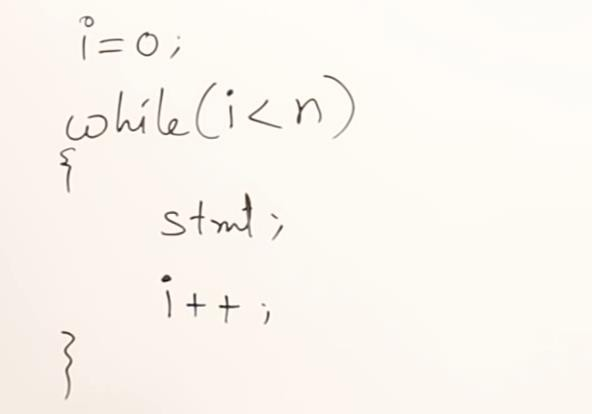 i=0;
while(i<n)
{
stmt;
i++;
}